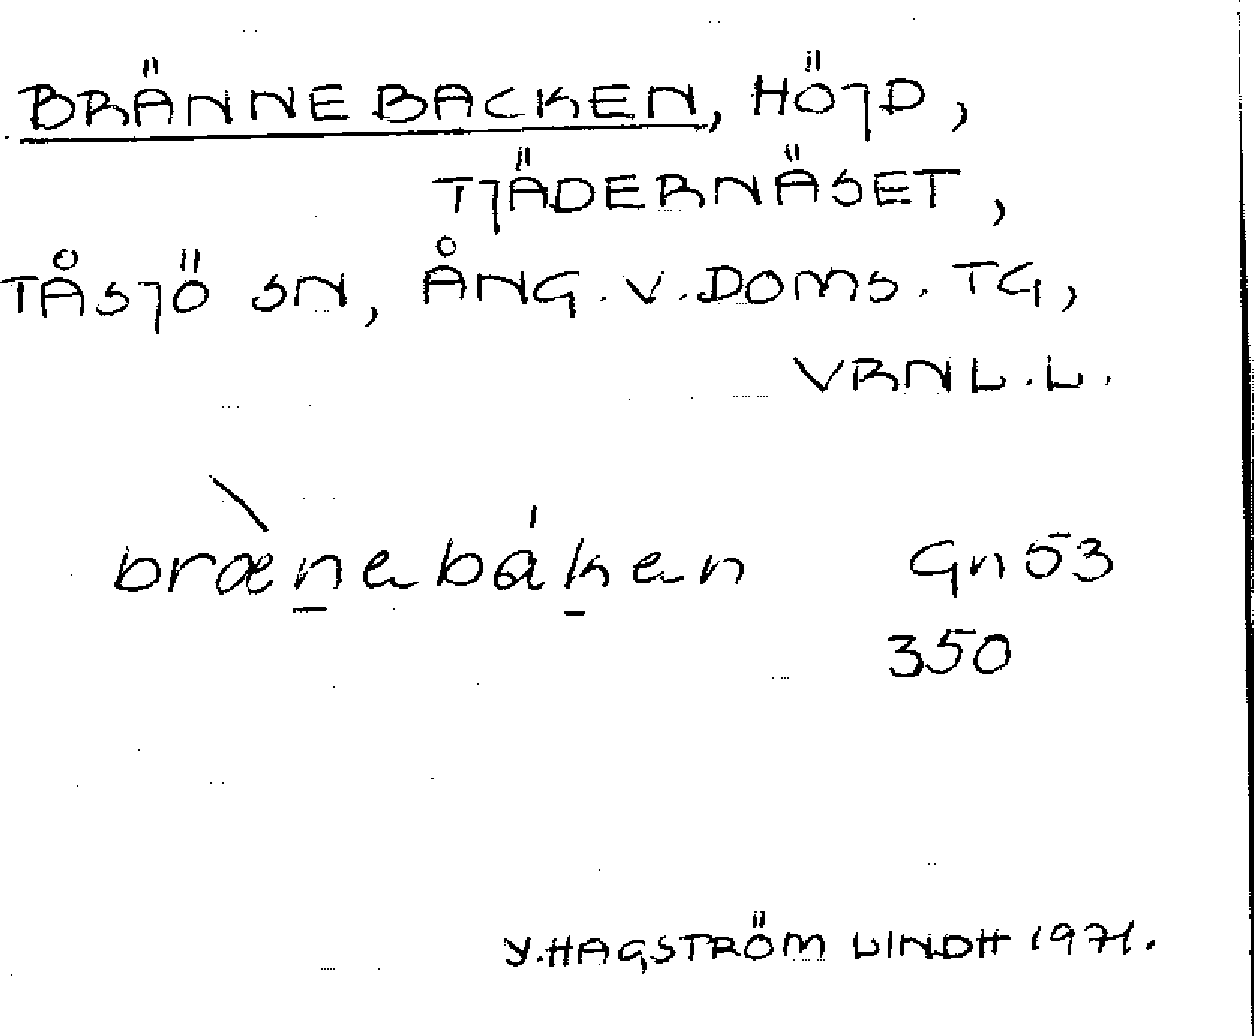 BRÄNNEBACKEN, HÖJD,
TJÄDERNÄSET,
TÅSJÖ SN, ÅNG. V. DOMS. TG,
VRNL. L.
brænebáken Gn 53
350
Y. HAGSTRÖM LINDH 1971.